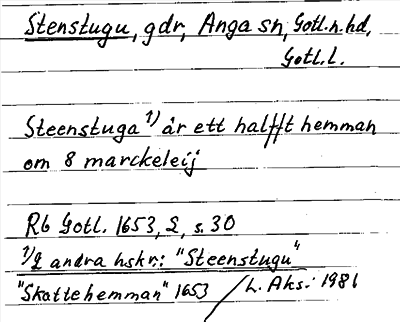 Stenstugu, gdr, Anga sn, Gotl. n. hd,
Gotl. l.
Steenstuga 1) är ett halfft hemman
om 8 marckeleij
Rb Gotl. 1653, 2, s. 30
1/2 andra hskr: "Steenstugu"
"Skattehemman" 1653 / L. Aks. 1981